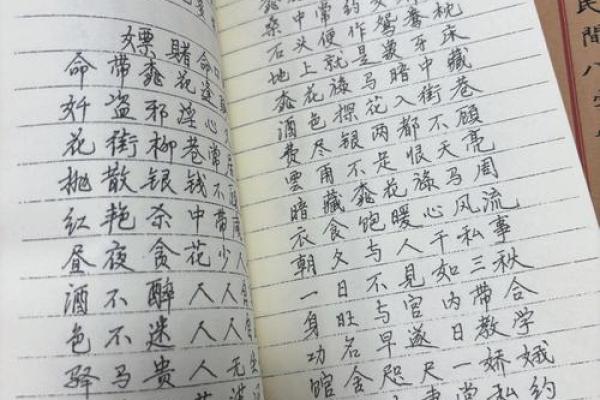 嫖赌命
命带桃花逢
奸盗邪淫心
花街柳巷常
抛散银钱不
红艳杀中带
昼夜贪花少人
酒不醉人人
色不迷人人
驿马贵人无
桑中常约
石头便作鸳鸯枕
地上就是象牙床
桃花禄马暗中藏
酒色探花入街巷
费尽银两都不顾
云雨不足恨天亮
暗藏桃花禄马周
衣食饱暖心风流
朝夕与人干私事
一日不见如三秋
身旺与官内带合
功名早遂日教学
馆舍咫尺一娇娥
常私约
民间八字